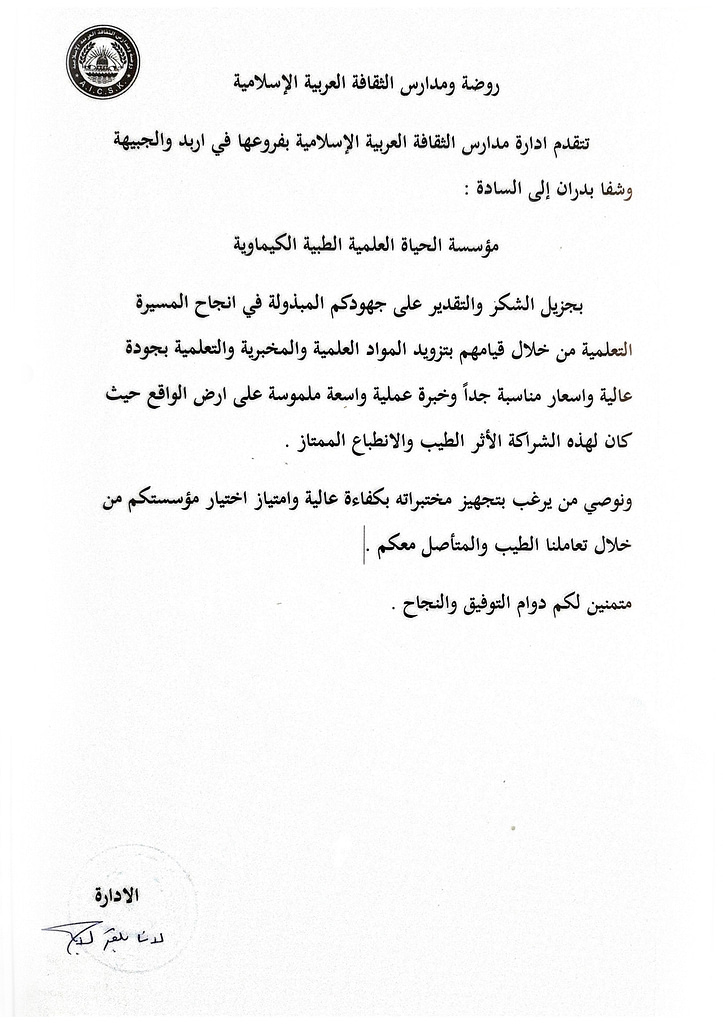 روضة ومدارس الثقافة العربية الإسلامية
تتقدم ادارة مدارس الثقافة العربية الإسلامية بفروعها في اربد والجبيهة
وشفا بدران إلى السادة :
مؤسسة الحياة العلمية الطبية الكيماوية
بجزيل الشكر والتقدير على جهودكم المبذولة في انجاح المسيرة
التعلمية من خلال قيامهم بتزويد المواد العلمية والمخبرية والتعلمية بجودة
عالية واسعار مناسبة جداً وخبرة عملية واسعة ملموسة على ارض الواقع حيث
كان لهذه الشراكة الأثر الطيب والانطباع الممتاز .
ونوصي من يرغب بتجهيز مختبراته بكفاءة عالية وامتياز اختيار مؤسستكم من
خلال تعاملنا الطيب والمتأصل معكم .
متمنين لكم دوام التوفيق والنجاح .
الادارة
A.I.C.S.K.